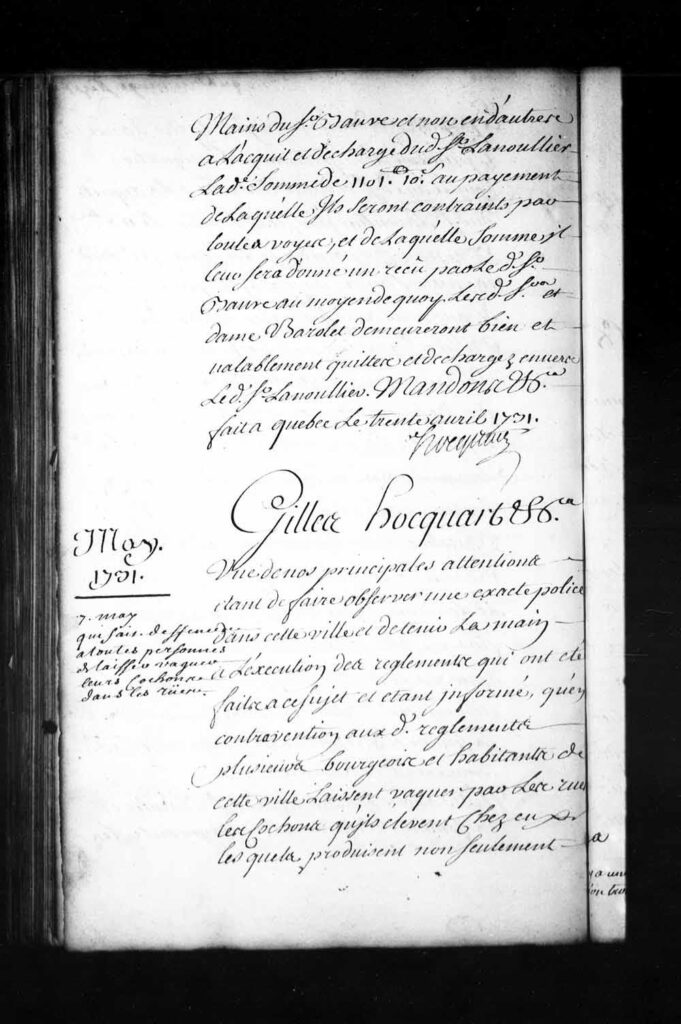 Mains du Sr. Daure et non end'autres
a L'acquit et decharge du d. Sr. Lanoullier
La de. Somme de 1101.tt 10.s au payement
de Laquelle Ils seront contraints par
toutes voyes, et de Laquelle Somme il
leur sera donné un recu par Le d. Sr.
Daure au moyen de quoy Lesd. Srs. et
dame Barolet demeureront bien et
valablement quittes et dechargez envers
Le d. Sr. Lanoullier. Mandons &c.a
fait a quebec Le trente avril 1731.
Hocquart
Gilles hocquart &c.a
May.
1731.
7. may
qui fait deffenses
a toutes personnes
de laisser vaguer
leurs Cochons
dans les rües
Une de nos principales attentions
etant de faire observer une exacte police
dans cette ville et de tenir La main
a L'execution des reglements qui ont été
faits a ce sujet et etant informé, qu'en
contravention aux d. reglements
plusieurs bourgeois et habitants de
cette ville Laissent vaguer par Les rues
les Cochons qu'ils élevent Chez eux
lesquels produisent non seulement